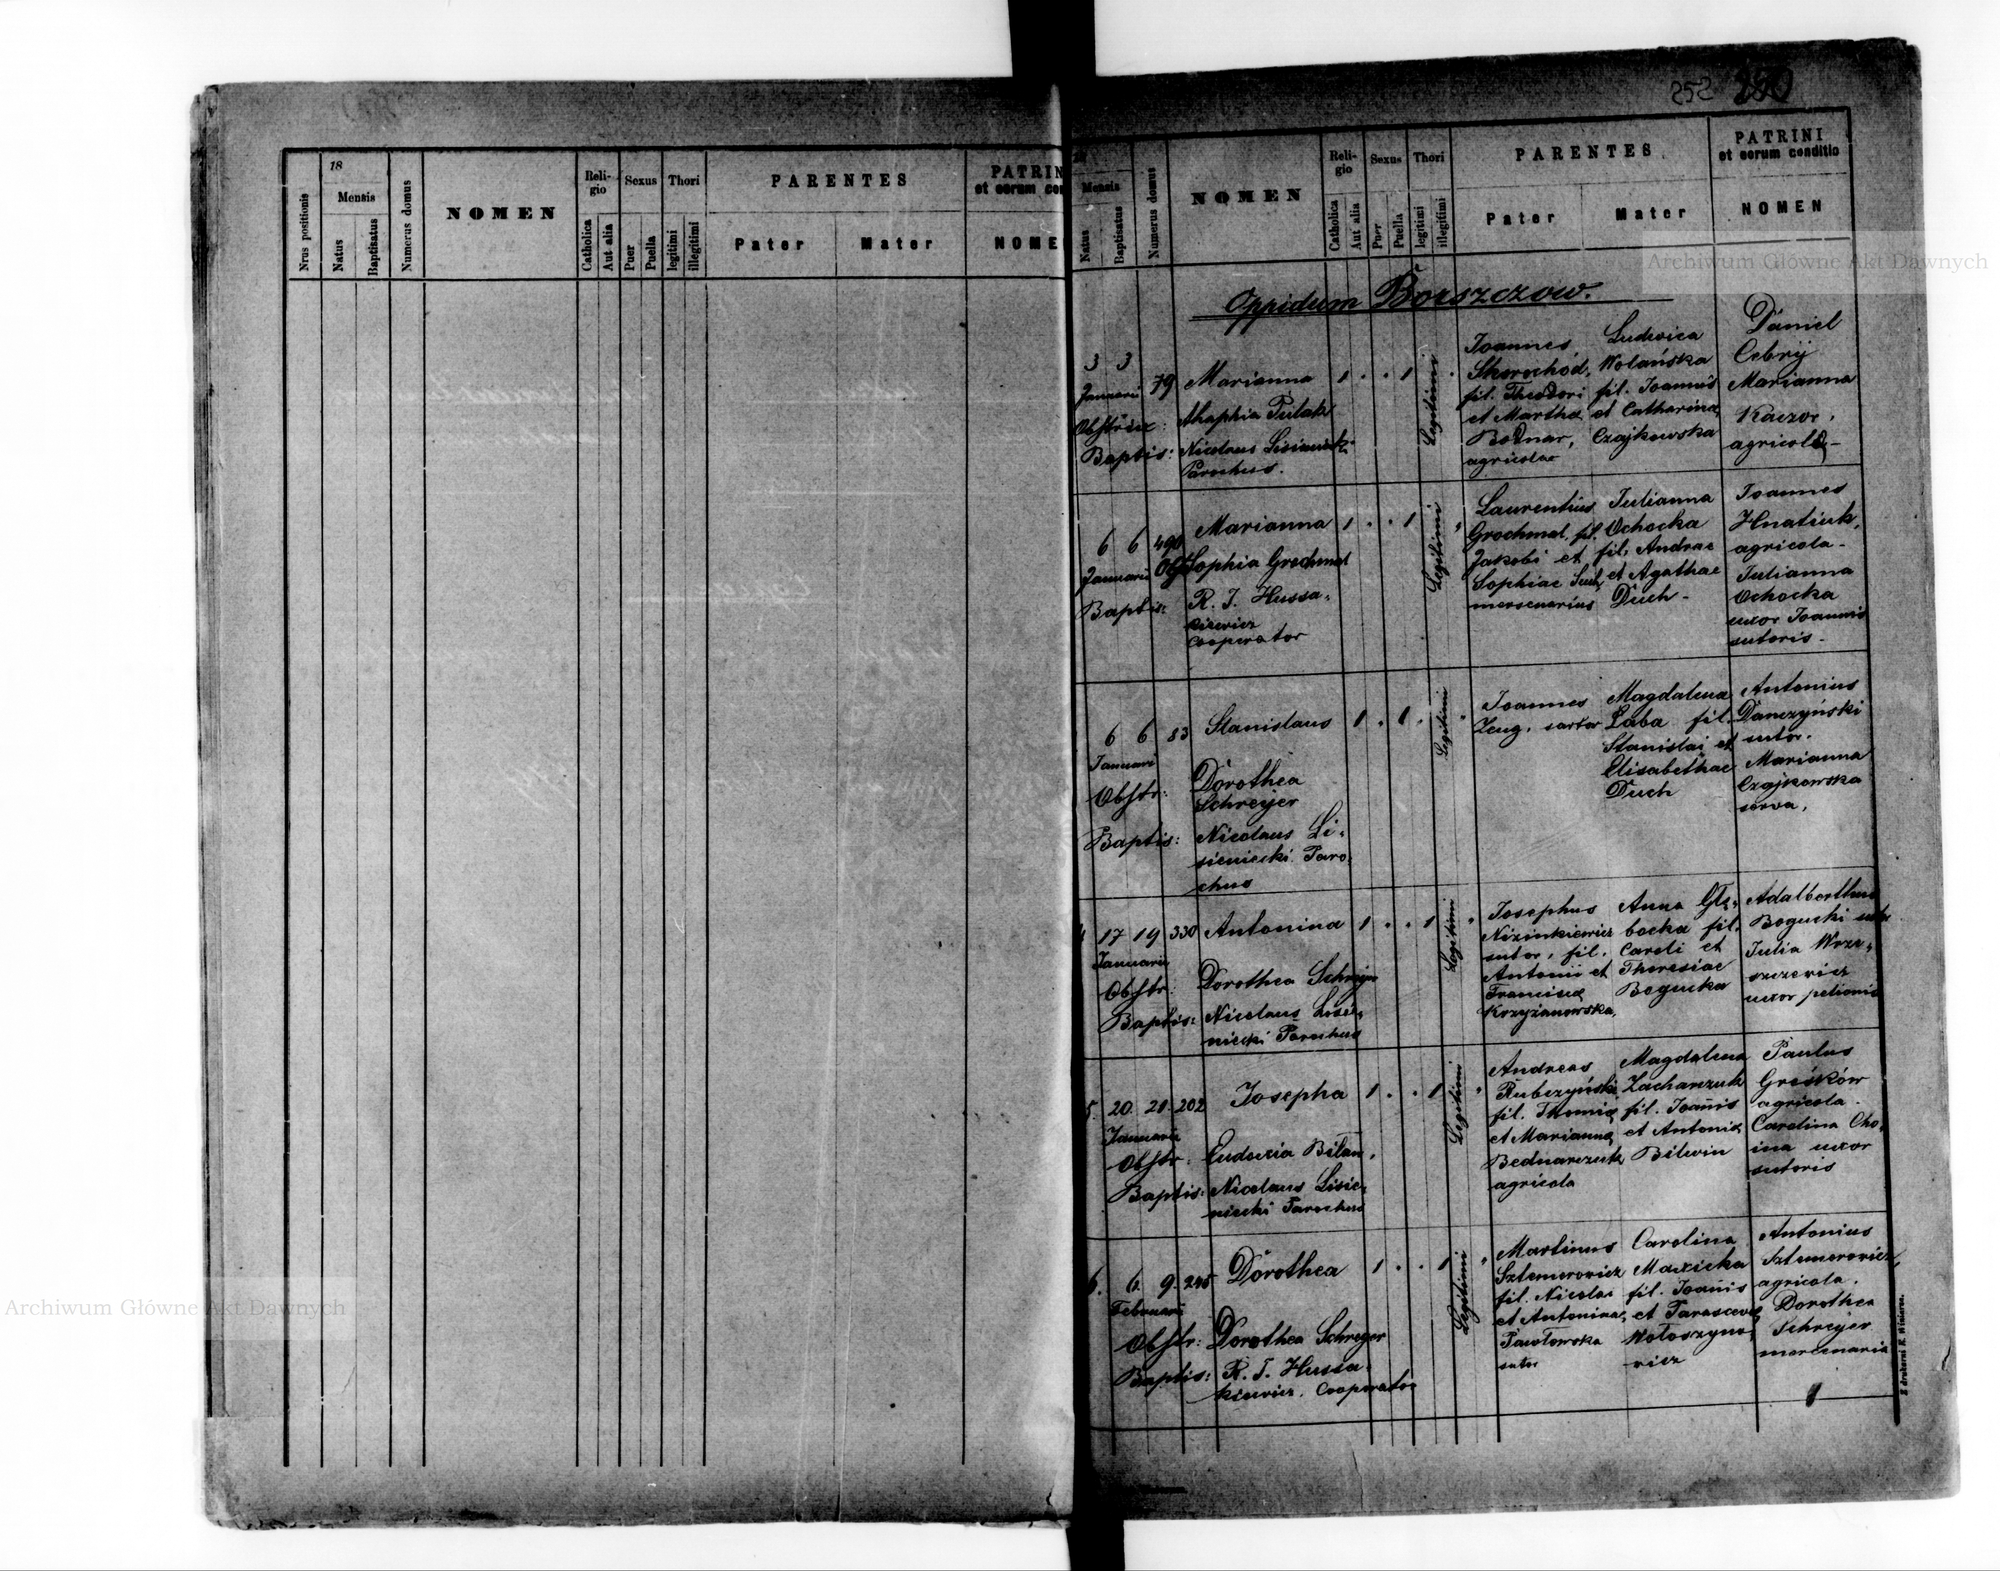 252
Nrus positionis
18
Mensis
Natus
Baptisatus
Numerus domus
NOMEN
Religio
Catholica
Aut alia
Sexus
Puer
Puella
Thori
legitimi
illegitimi
PARENTES
Pater
Mater
PATRIN
et eorum con
NOME
Mensis
Natus
Baptisatus
Numerus domus
NOMEN
Reli-
gio
Catholica
Aut alia
Sexus
Puer
Puella
Thori
legitimi
illegitimi
PARENTES
Pater
Mater
PATRINI
et eorum conditio
NOMEN
Archiwum Główne Akt Dawnych
Oppidum Borszczow.
3 3 79
Januarii
Obstrix:
Baptis:
Marianna
Pulak
Nicolaus
Parochus.
1 . . 1
Legitimi
Joannes
Skorochód,
fil. Theodori
et Martha
Bodnar,
agricolae
Ludovica
Wolańska
fil. Joannis
et Catharina
Czajkowska
Daniel
Cebrij
Marianna
Kaczor,
agricola-
6 6 490
Januarii
Baptis:
Marianna
Sophia Grochmal
R. J. Hussa-
kiewicz
Cooperator
1 . . 1
Legitimi
Laurentius
Grochmal, fil.
Jakobi et
Sophiae
mercenarius
Julianna
Ochocka
fil. Andrae
et Agathae
Duch -
Joannes
Hnatiuk,
agricola-
Julianna
Ochocka
uxor Joannis
sutoris -
6 6 83
Januari
Obstr:
Baptis:
Stanislaus
Dorothea
Schreyer
Nicolaus Li-
sieniecki Paro-
chus
1 . 1 .
Legitimi
Joannes
Zeug, sartor
Magdalena
Łaba fil.
Stanislai et
Elisabethae
Duch
Antonius
Danczyński
sutor.
Marianna
Czajkowska
serva,
17 19 330
Januarii
Obstr:
Baptis:
Antonina
Dorothea Schreyer
Nicolaus Lisie-
niecki Parochus
1 . . 1
Legitimi
Josephus
Nizinkiewicz
sutor, fil.
Antonii et
Francisca
Krzyżanowska,
Anna Głę-
bocka fil.
Caroli et
Theresiae
Bogucka
Adalberthus
Bogucki sutor
Julia
uxor pelionis
5 20 21 202
Januarii
Obstr:
Baptis:
Josepha
Eudoxia Bilan,
Nicolaus Lisie-
niecki Parochus
1 . . 1
Legitimi
Andreas
Rubczyński
fil. Thomae
et Marianna
Bednarczuk
agricola
Magdalena
Zacharczuk
fil. Joanis
et Antonia
Bilwin
Paulus
Greśków
agricola.
Carolina Cho-
ina uxor
sutoris
6. 6 9 245
Februarii
Obstr:
Baptis:
Dorothea
Dorothea Schreyer
R. J. Hussa-
kiewicz, Cooperator
1 . . 1
Legitimi
Martinus
Sztemerowicz
fil. Nicolai
et Antoninae
Pawłowska
sutor
Carolina
Maxicka
fil. Joanis
et Parasceva
Wołoszyno-
wicz
Antonius
Sztemerowicz,
agricola.
Dorothea
Schreyer
mercenaria
Z drukarni K. Winiarza.
Archiwum Główne Akt Dawnych